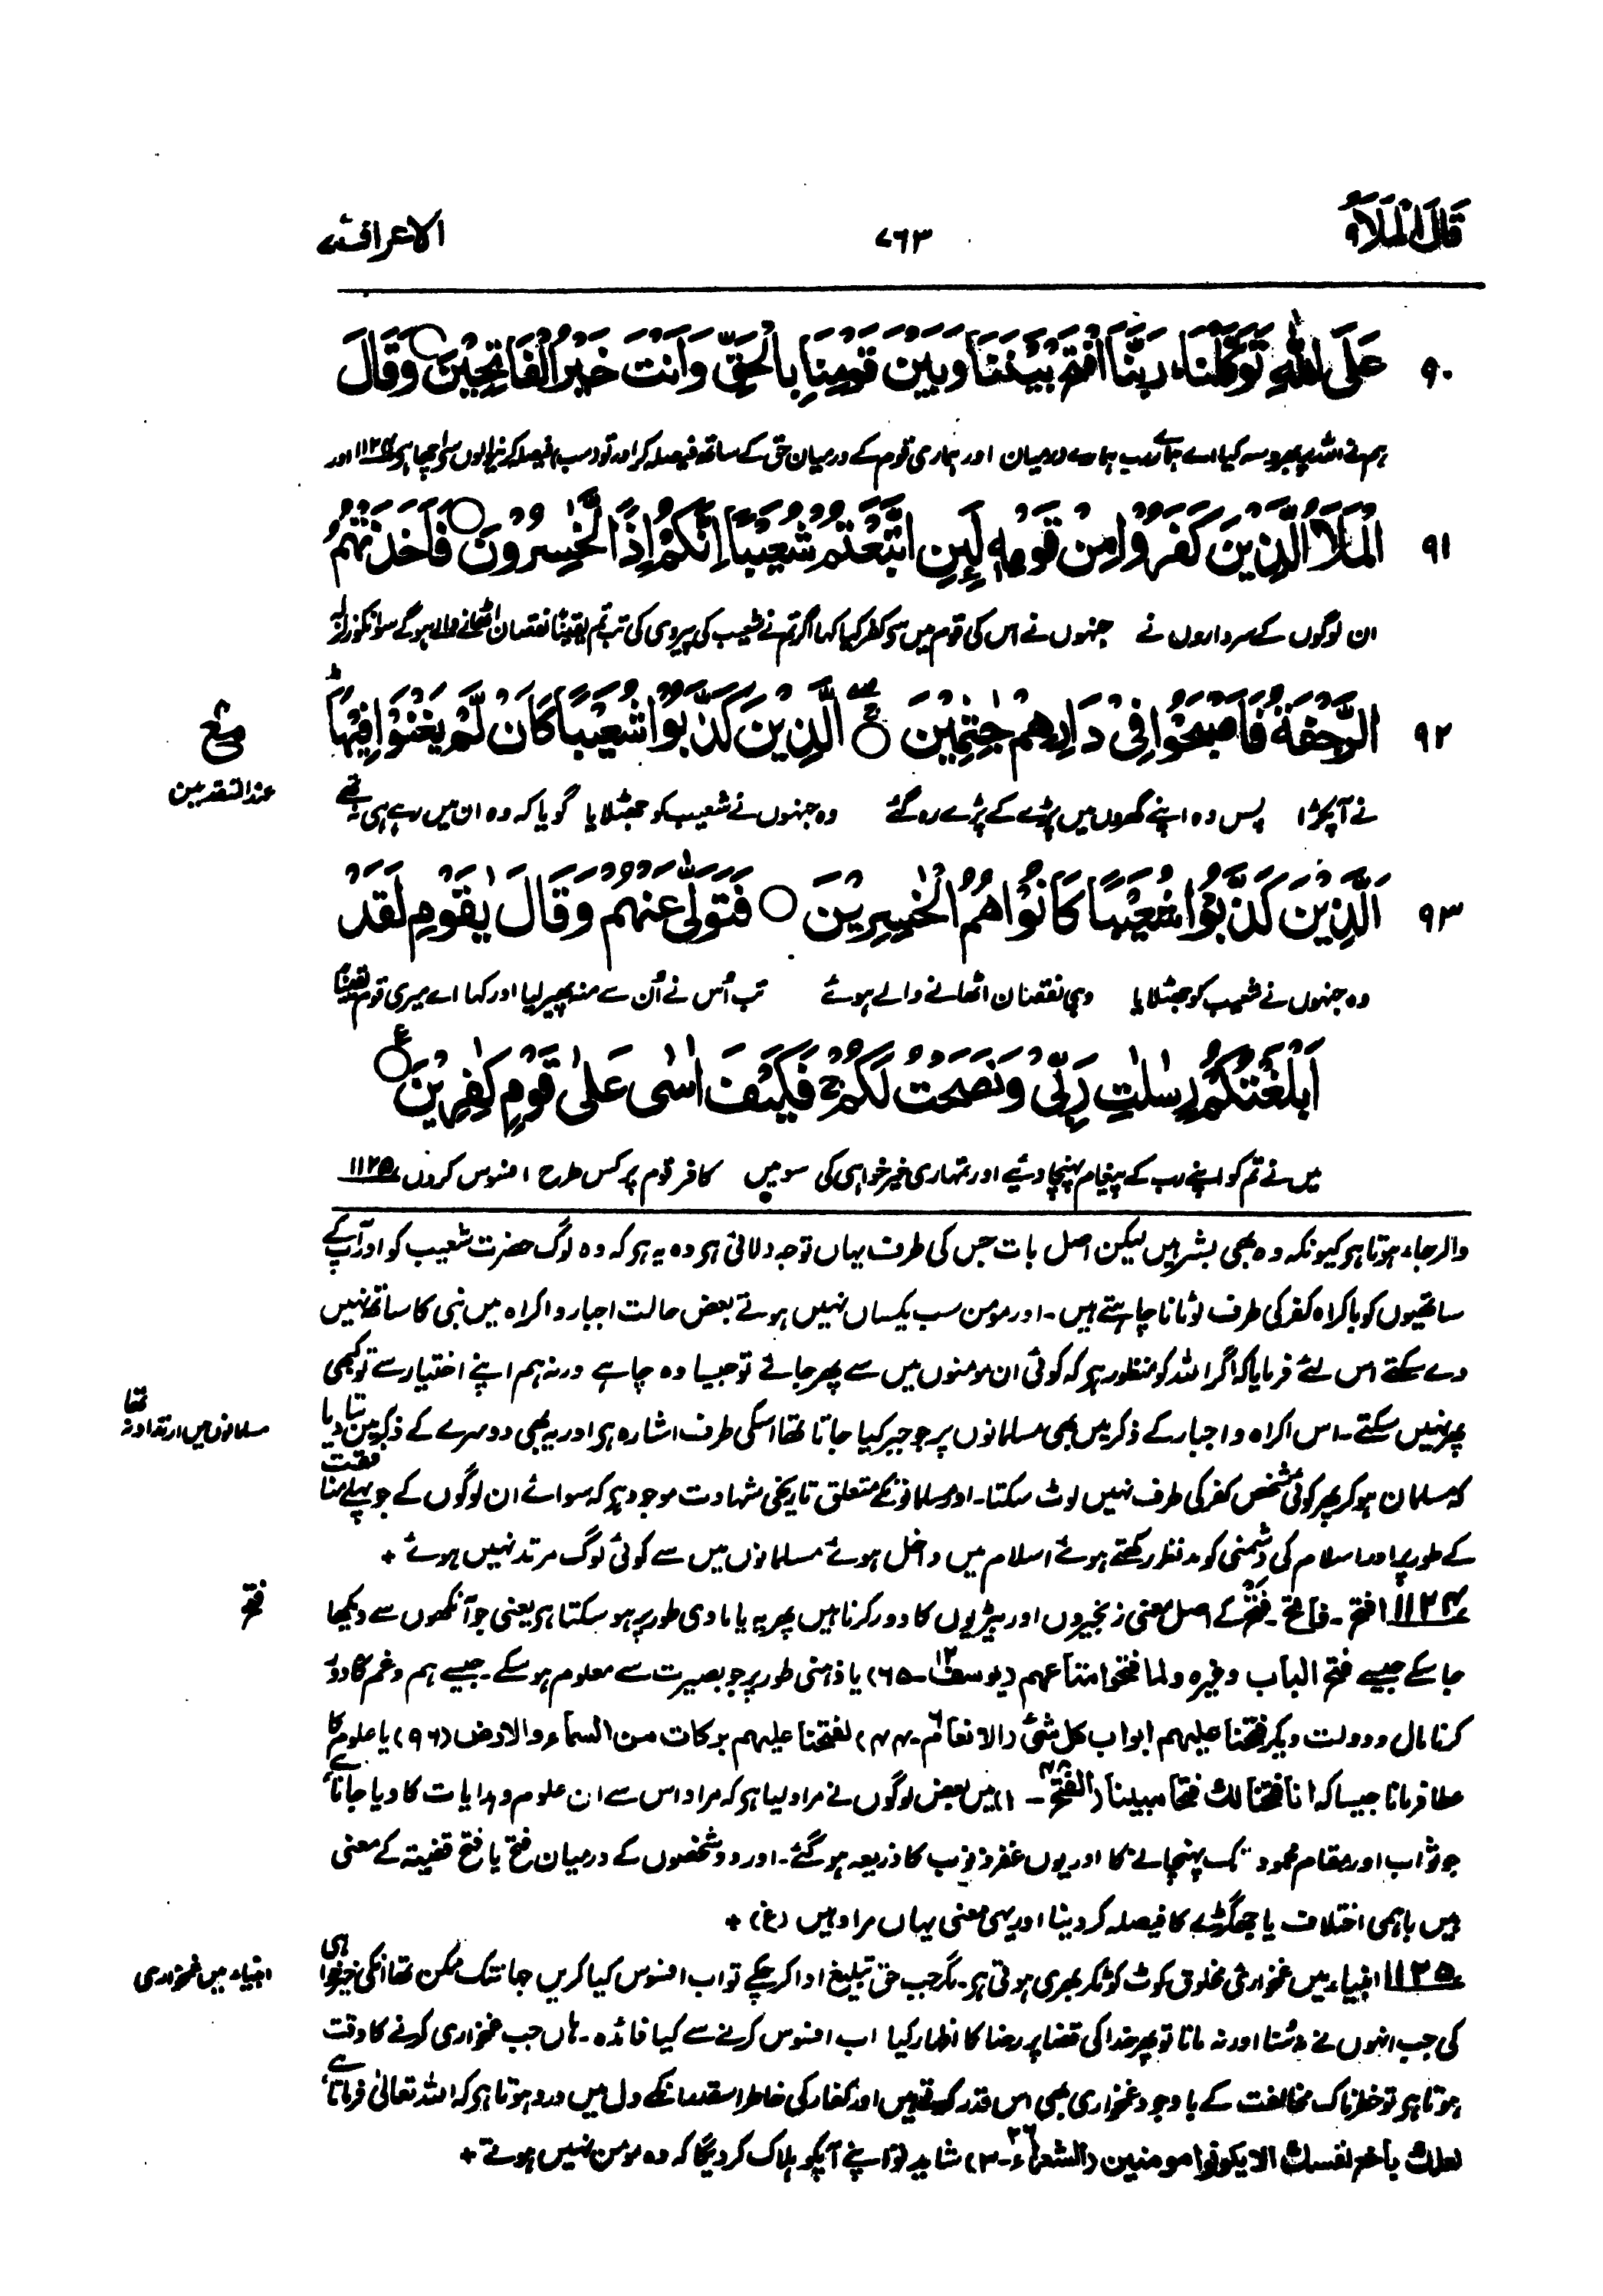 قَالَ الْمَلَاُ ۹
۷۶۳
الاعراف ۷
۹۰ عَلَى اللّٰهِ تَوَكَّلْنَا، رَبَّنَا افْتَحْ بَيْنَنَا وَبَيْنَ قَوْمِنَا بِالْحَقِّ وَاَنْتَ خَيْرُ الْفَاتِحِيْنَ ○ وَقَالَ
ہم نے اللہ پر بھروسہ کیا اے ہمارے رب ہمارے درمیان اور ہماری قوم کے درمیان حق کے ساتھ فیصلہ کر اور تو سب فیصلہ کرنیوالوں سے اچھا ہی ۱۱۲۴ اور
۹۱ الْمَلَاُ الَّذِيْنَ كَفَرُوْا مِنْ قَوْمِهٖ لَئِنِ اتَّبَعْتُمْ شُعَيْبًا اِنَّكُمْ اِذًا لَّخٰسِرُوْنَ ○ فَاَخَذَتْهُمُ
ان لوگوں کے سرداروں نے جنہوں نے اس کی قوم میں سے کفر کیا کہا اگر تم نے شعیب کی پیروی کی تب تم یقیناً نقصان اٹھانے والے ہوگے سو انکو زلزلہ
۹۲ الرَّجْفَةُ فَاَصْبَحُوْا فِيْ دَارِهِمْ جٰثِمِيْنَ ○ الَّذِيْنَ كَذَّبُوْا شُعَيْبًا كَاَنْ لَّمْ يَغْنَوْا فِيْهَا ۛ
عند المتقدمين
نے آپکڑا پس وہ اپنے گھروں میں پڑے کے پڑے رہ گئے وہ جنہوں نے شعیب کو جھٹلایا گویا کہ وہ ان میں رہے ہی نہ تھے
۹۳ اَلَّذِيْنَ كَذَّبُوْا شُعَيْبًا كَانُوْا هُمُ الْخٰسِرِيْنَ ○ فَتَوَلّٰى عَنْهُمْ وَقَالَ يٰقَوْمِ لَقَدْ
وہ جنہوں نے شعیب کو جھٹلایا وہی نقصان اٹھانے والے ہوئے تب اُس نے اُن سے منہ پھیر لیا اور کہا اے میری قوم یقیناً
اَبْلَغْتُكُمْ رِسٰلٰتِ رَبِّيْ وَنَصَحْتُ لَكُمْ ۚ فَكَيْفَ اٰسٰى عَلٰى قَوْمٍ كٰفِرِيْنَ ○ ع
میں نے تم کو اپنے رب کے پیغام پہنچا دئیے اور تمہاری خیر خواہی کی سو میں کافر قوم پر کس طرح افسوس کروں ۱۱۲۵
والرجاء ہوتا ہی کیونکہ وہ بھی بشر ہیں لیکن اصل بات جس کی طرف یہاں توجہ دلائی ہی وہ یہ ہی کہ وہ لوگ حضرت شعیب کو اور آپ کے
ساتھیوں کو باکراہ کفر کی طرف لوٹانا چاہتے ہیں۔ اور مومن سب یکساں نہیں ہوتے بعض حالت اجبار و اکراہ میں نبی کا ساتھ نہیں
دے سکتے اس لئے فرمایا کہ اگر اللہ کو منظور ہو کہ کوئی ان مومنوں میں سے پھر جائے تو جیسا وہ چاہے ورنہ ہم اپنے اختیار سے تو کبھی
پھر نہیں سکتے۔ اس اکراہ و اجبار کے ذکر میں بھی مسلمانوں پر جو جبر کیا جاتا تھا اسکی طرف اشارہ ہی اور یہ بھی دوسرے کے ذکر میں بتا دیا
مسلمانوں میں ارتداد نہ تھا
کہ مسلمان ہو کر پھر کوئی شخص کفر کی طرف نہیں لوٹ سکتا۔ اور مسلمانونکے متعلق تاریخی شہادت موجود ہی کہ سوائے ان لوگوں کے جو پہلے منافقت
کے طور پر اور اسلام کی دشمنی کو مدنظر رکھتے ہوئے اسلام میں داخل ہوئے مسلمانوں میں سے کوئی لوگ مرتد نہیں ہوئے +
۱۱۲۴ افتح۔ فاتح۔ فَتْح کے اصل معنی زنجیروں اور بیڑیوں کا دور کرنا ہیں پھر یہ یا مادی طور پر ہو سکتا ہی یعنی جو آنکھوں سے دیکھا
فتح
جا سکے جیسے فتح الباب وغیرہ ولما فتحوا متاعہم (یوسف ۱۲۔ ۶۵) یا ذہنی طور پر جو بصیرت سے معلوم ہو سکے۔ جیسے ہم و غم کا دور
کرنا مال و دولت دیکر فتحنا علیہم ابواب کل شئ (الانعام ۶۔ ۴۴) لفتحنا علیہم برکات من السماء والارض (۹۶) یا علوم کا
عطا فرمانا جیسا کہ انا فتحنا لک فتحا مبینا (الفتح ۴۸۔ ۱) میں بعض لوگوں نے مراد لیا ہی کہ مراد اس سے ان علوم و ہدایات کا دیا جانا ہے
جو ثواب اور مقام محمود تک پہنچانے کا اور یوں غفر ذنوب کا ذریعہ ہو گئے۔ اور دو شخصوں کے درمیان فتح یا فتح قضیۃ کے معنی
ہیں باہمی اختلاف یا جھگڑے کا فیصلہ کر دینا اور یہی معنی یہاں مراد ہیں (غ) +
۱۱۲۵ انبیاء میں غمخواری مخلوق کوٹ کوٹ کر بھری ہوتی ہی۔ مگر جب حق تبلیغ ادا کر چکے تو اب افسوس کیا کریں جہانتک ممکن تھا انکی خیر خواہی
انبیاء میں غمخواری
کی جب انہوں نے نہ سُنا اور نہ مانا تو پھر خدا کی قضا پر رضا کا اظہار کیا اب افسوس کرنے سے کیا فائدہ۔ ہاں جب غمخواری کرنے کا وقت
ہوتا ہی تو خطرناک مخالفت کے باوجود غمخواری بھی اس قدر کرتے ہیں اور کفار کی خاطر اسقدر انکے دل میں درد ہوتا ہی کہ اللہ تعالیٰ فرماتا ہے
لعلک باخع نفسک الا یکونوا مومنین (الشعراء ۲۶۔ ۳) شاید تو اپنے آپکو ہلاک کر دیگا کہ وہ مومن نہیں ہوتے +